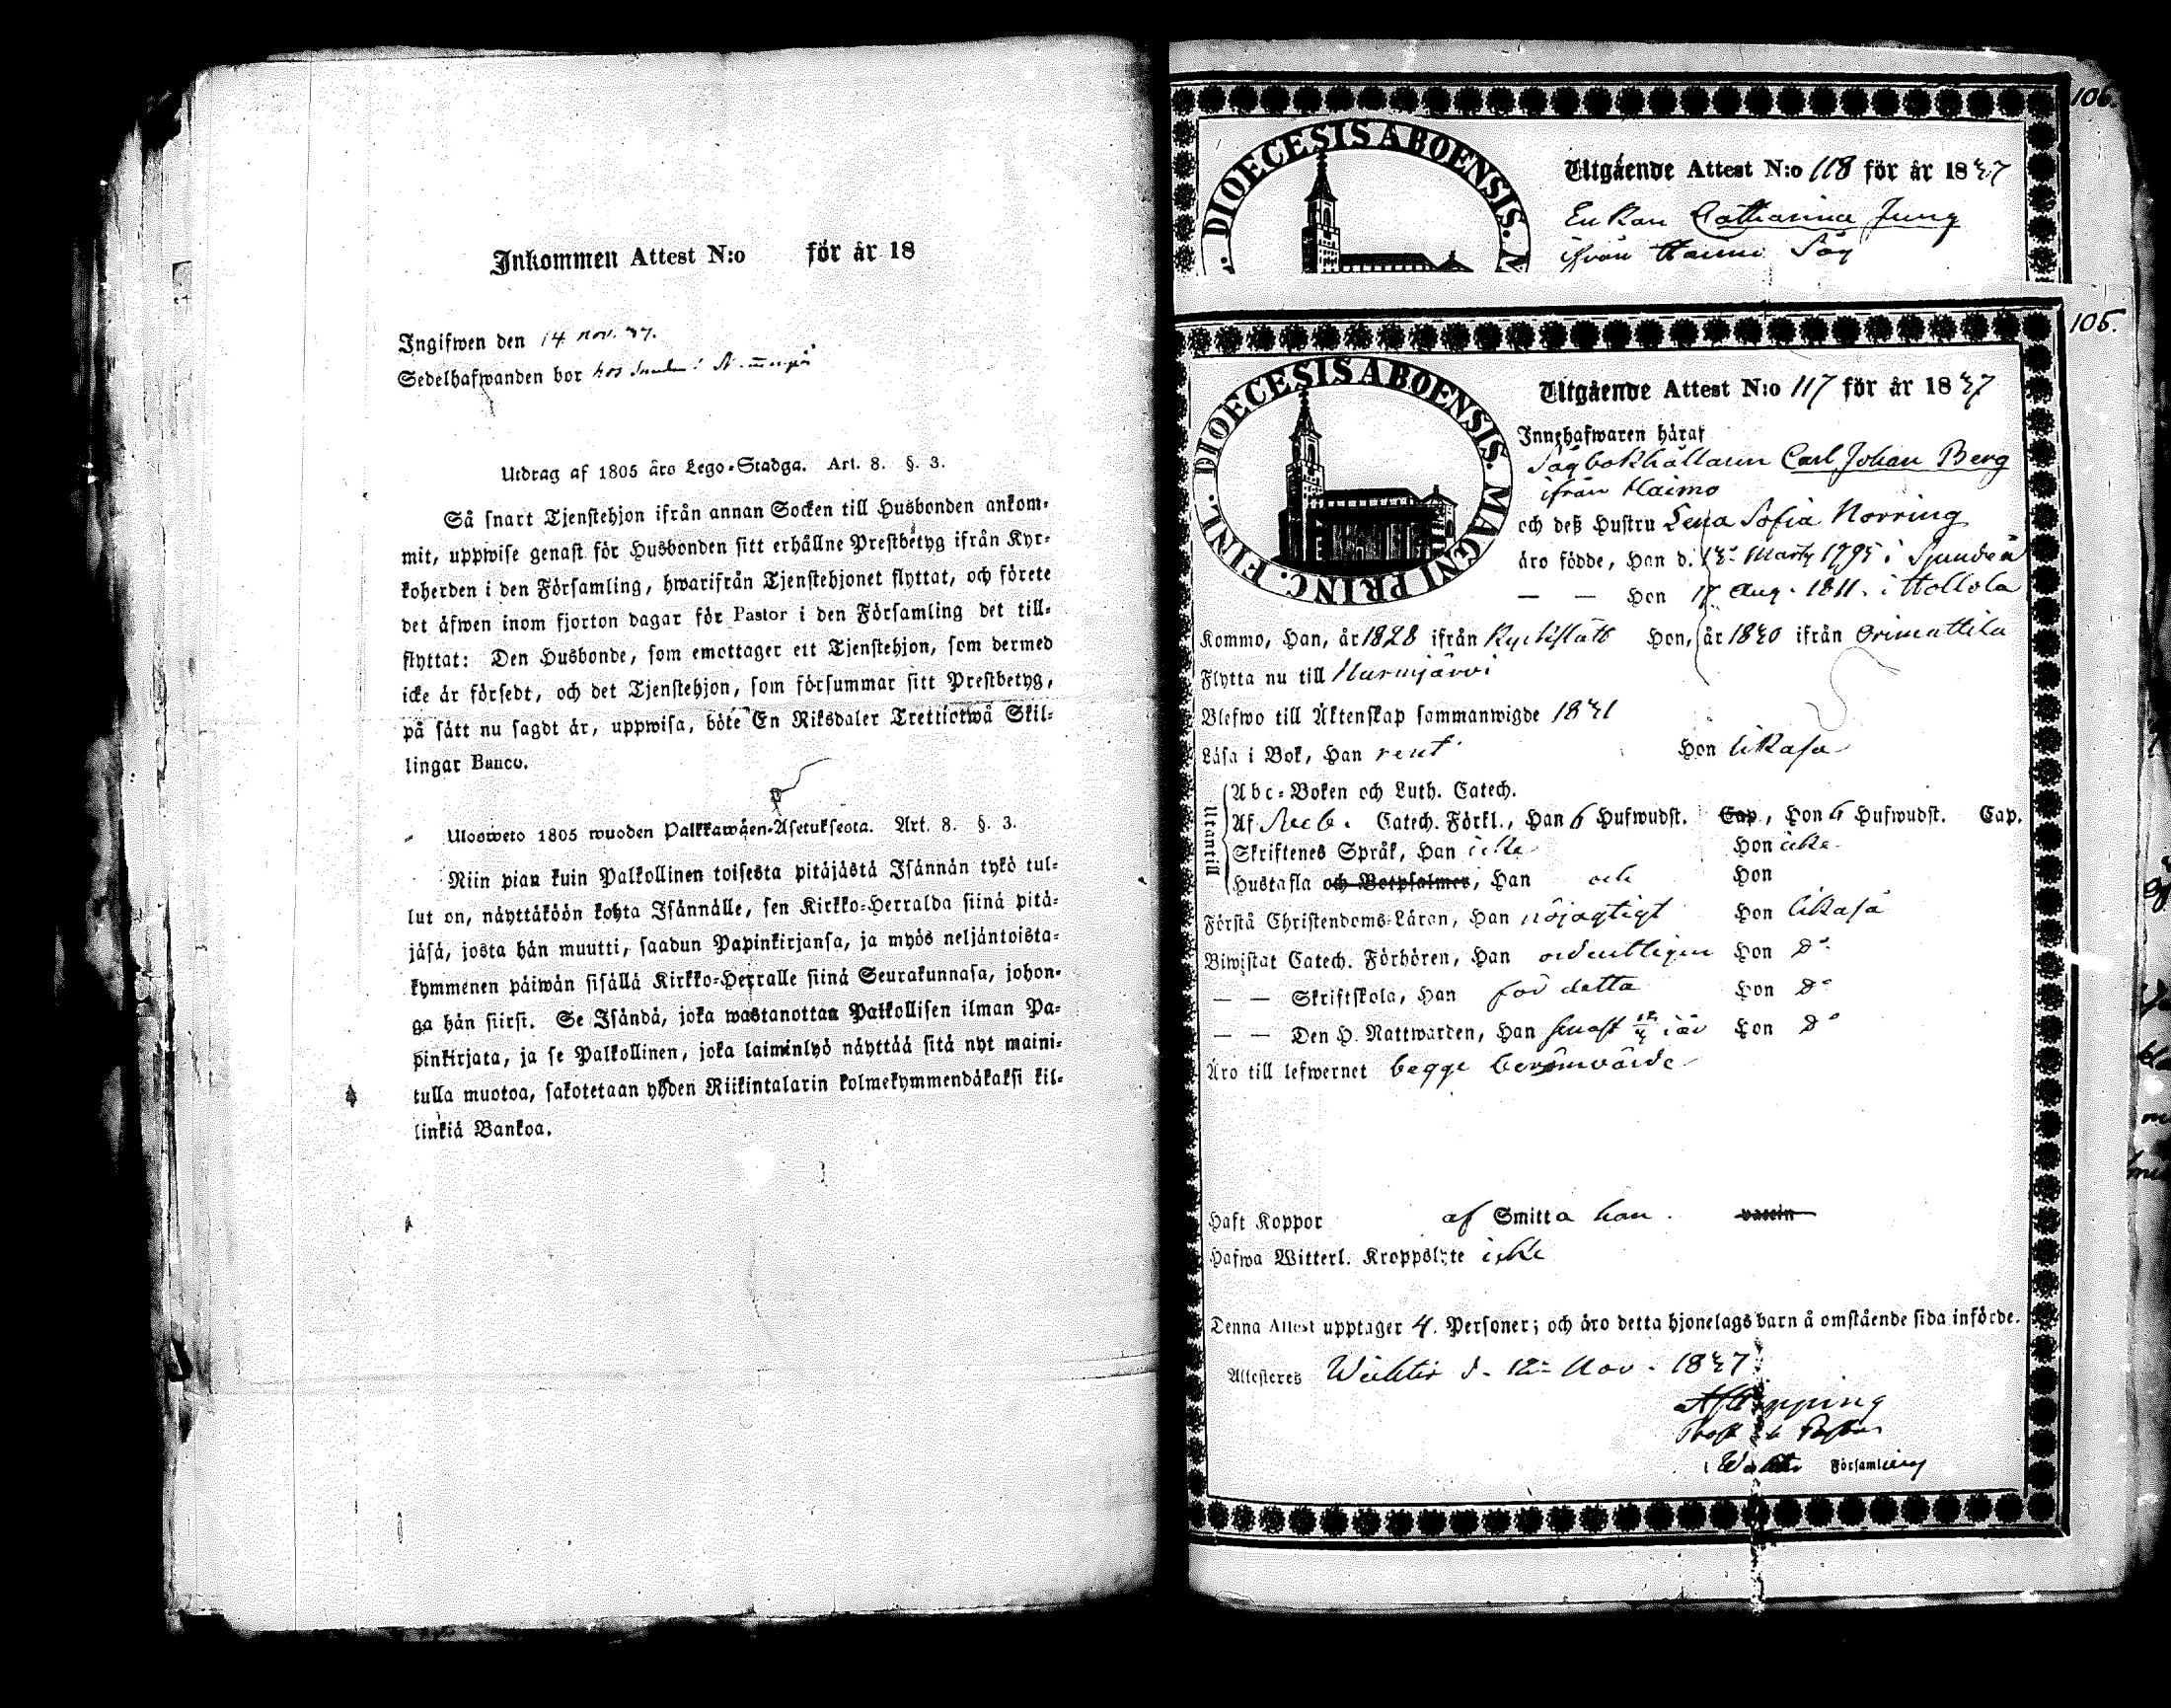 Inkommen Attest N:o för år 18
Ingifwen den 14 nov. 37.
Sedelhafwanden bor hos
Utdrag af 1805 års Lego-Stadga. Art. 8. §. 3.
Så snart Tjenstehjon ifrån annan Socken till Husbonden ankom-
mit, uppwise genast för Husbonden sitt erhållne Prestbetyg ifrån Kyr-
koherden i den Församling, hwarifrån Tjenstehjonet flyttat, och förete
det äfwen inom fjorton dagar för Pastor i den Församling det till-
flyttat: Den Husbonde, som emottager ett Tjenstehjon, som dermed
icke är försedt, och det Tjenstehjon, som försummar sitt Prestbetyg,
på sätt nu sagdt är, uppwisa, böte En Riksdaler Trettiotwå Skil-
lingar Banco.
Ulosweto 1805 wuoden Palkkawäen-Asetuksesta. Art. 8. §. 3.
Niin pian kuin Palkollinen toisesta pitäjästä Isännän tykö tul-
lut on, näyttäköön kohta Isännälle, sen Kirkko-Herralda siinä pitä-
jäsä, josta hän muutti, saadun Papinkirjansa, ja myös neljäntoista-
kymmenen päiwän sisällä Kirkko-Herralle siinä Seurakunnasa, johon-
ga hän siirsi. Se Isändä, joka wastanottaa Palkollisen ilman Pa-
pinkirjata, ja se Palkollinen, joka laiminlyö näyttää sitä nyt maini-
tulla muotoa, sakotetaan yhden Riikintalarin kolmekymmendäkaksi kil-
linkiä Bankoa.
106.
DIOECESIS ABOENSIS.
Utgående Attest N:o 118 för år 1837
Enkan Catharina Jung
ifrån Haimo Såg
105.
DIOECESIS ABOENSIS. MAGNI PRINC. FINL.
Utgående Attest N:o 117 för år 1837
Innehafwaren häraf
Sågbokhållaren Carl Johan Berg
ifrån Haimo
och deß Hustru Lena Sofia Norring
äro födde, Han d. 13 Marty 1795 i Sjundeå
— — Hon 17 Aug. 1811. i Hollola
Kommo, Han, år 1828 ifrån Kyrkslätt Hon, år 1830 ifrån Orimattila
Flytta nu till Nurmjärvi
Blefwo till Äktenskap sammanwigde 1831
Läsa i Bok, Han rent Hon likaså
Utantill
Abc-Boken och Luth. Catech.
Af Catech. Förkl., Han 6 Hufwudst. Cap., Hon 6 Hufwudst. Cap.
Skriftenes Språk, Han icke Hon icke
Hustafla och Botpsalmer, Han och Hon
Förstå Christendoms-Läran, Han nöjagtigt Hon likaså
Biwistat Catech. Förhören, Han ordentligen Hon d:o
— — Skriftskola, Han för detta Hon d:o
— — Den H. Nattwarden, Han senast i år Hon d:o
Äro till lefwernet begge berömvärde
Haft Koppor af Smitta han. vaccin
Hafwa Witterl. Kroppslyte icke
Denna Attest upptager 4. Personer; och äro detta hjonelags barn å omstående sida införde.
Attesteres Wichtis d. 12 Nov. 1837
Prost Pastor
i Wichtis Församling